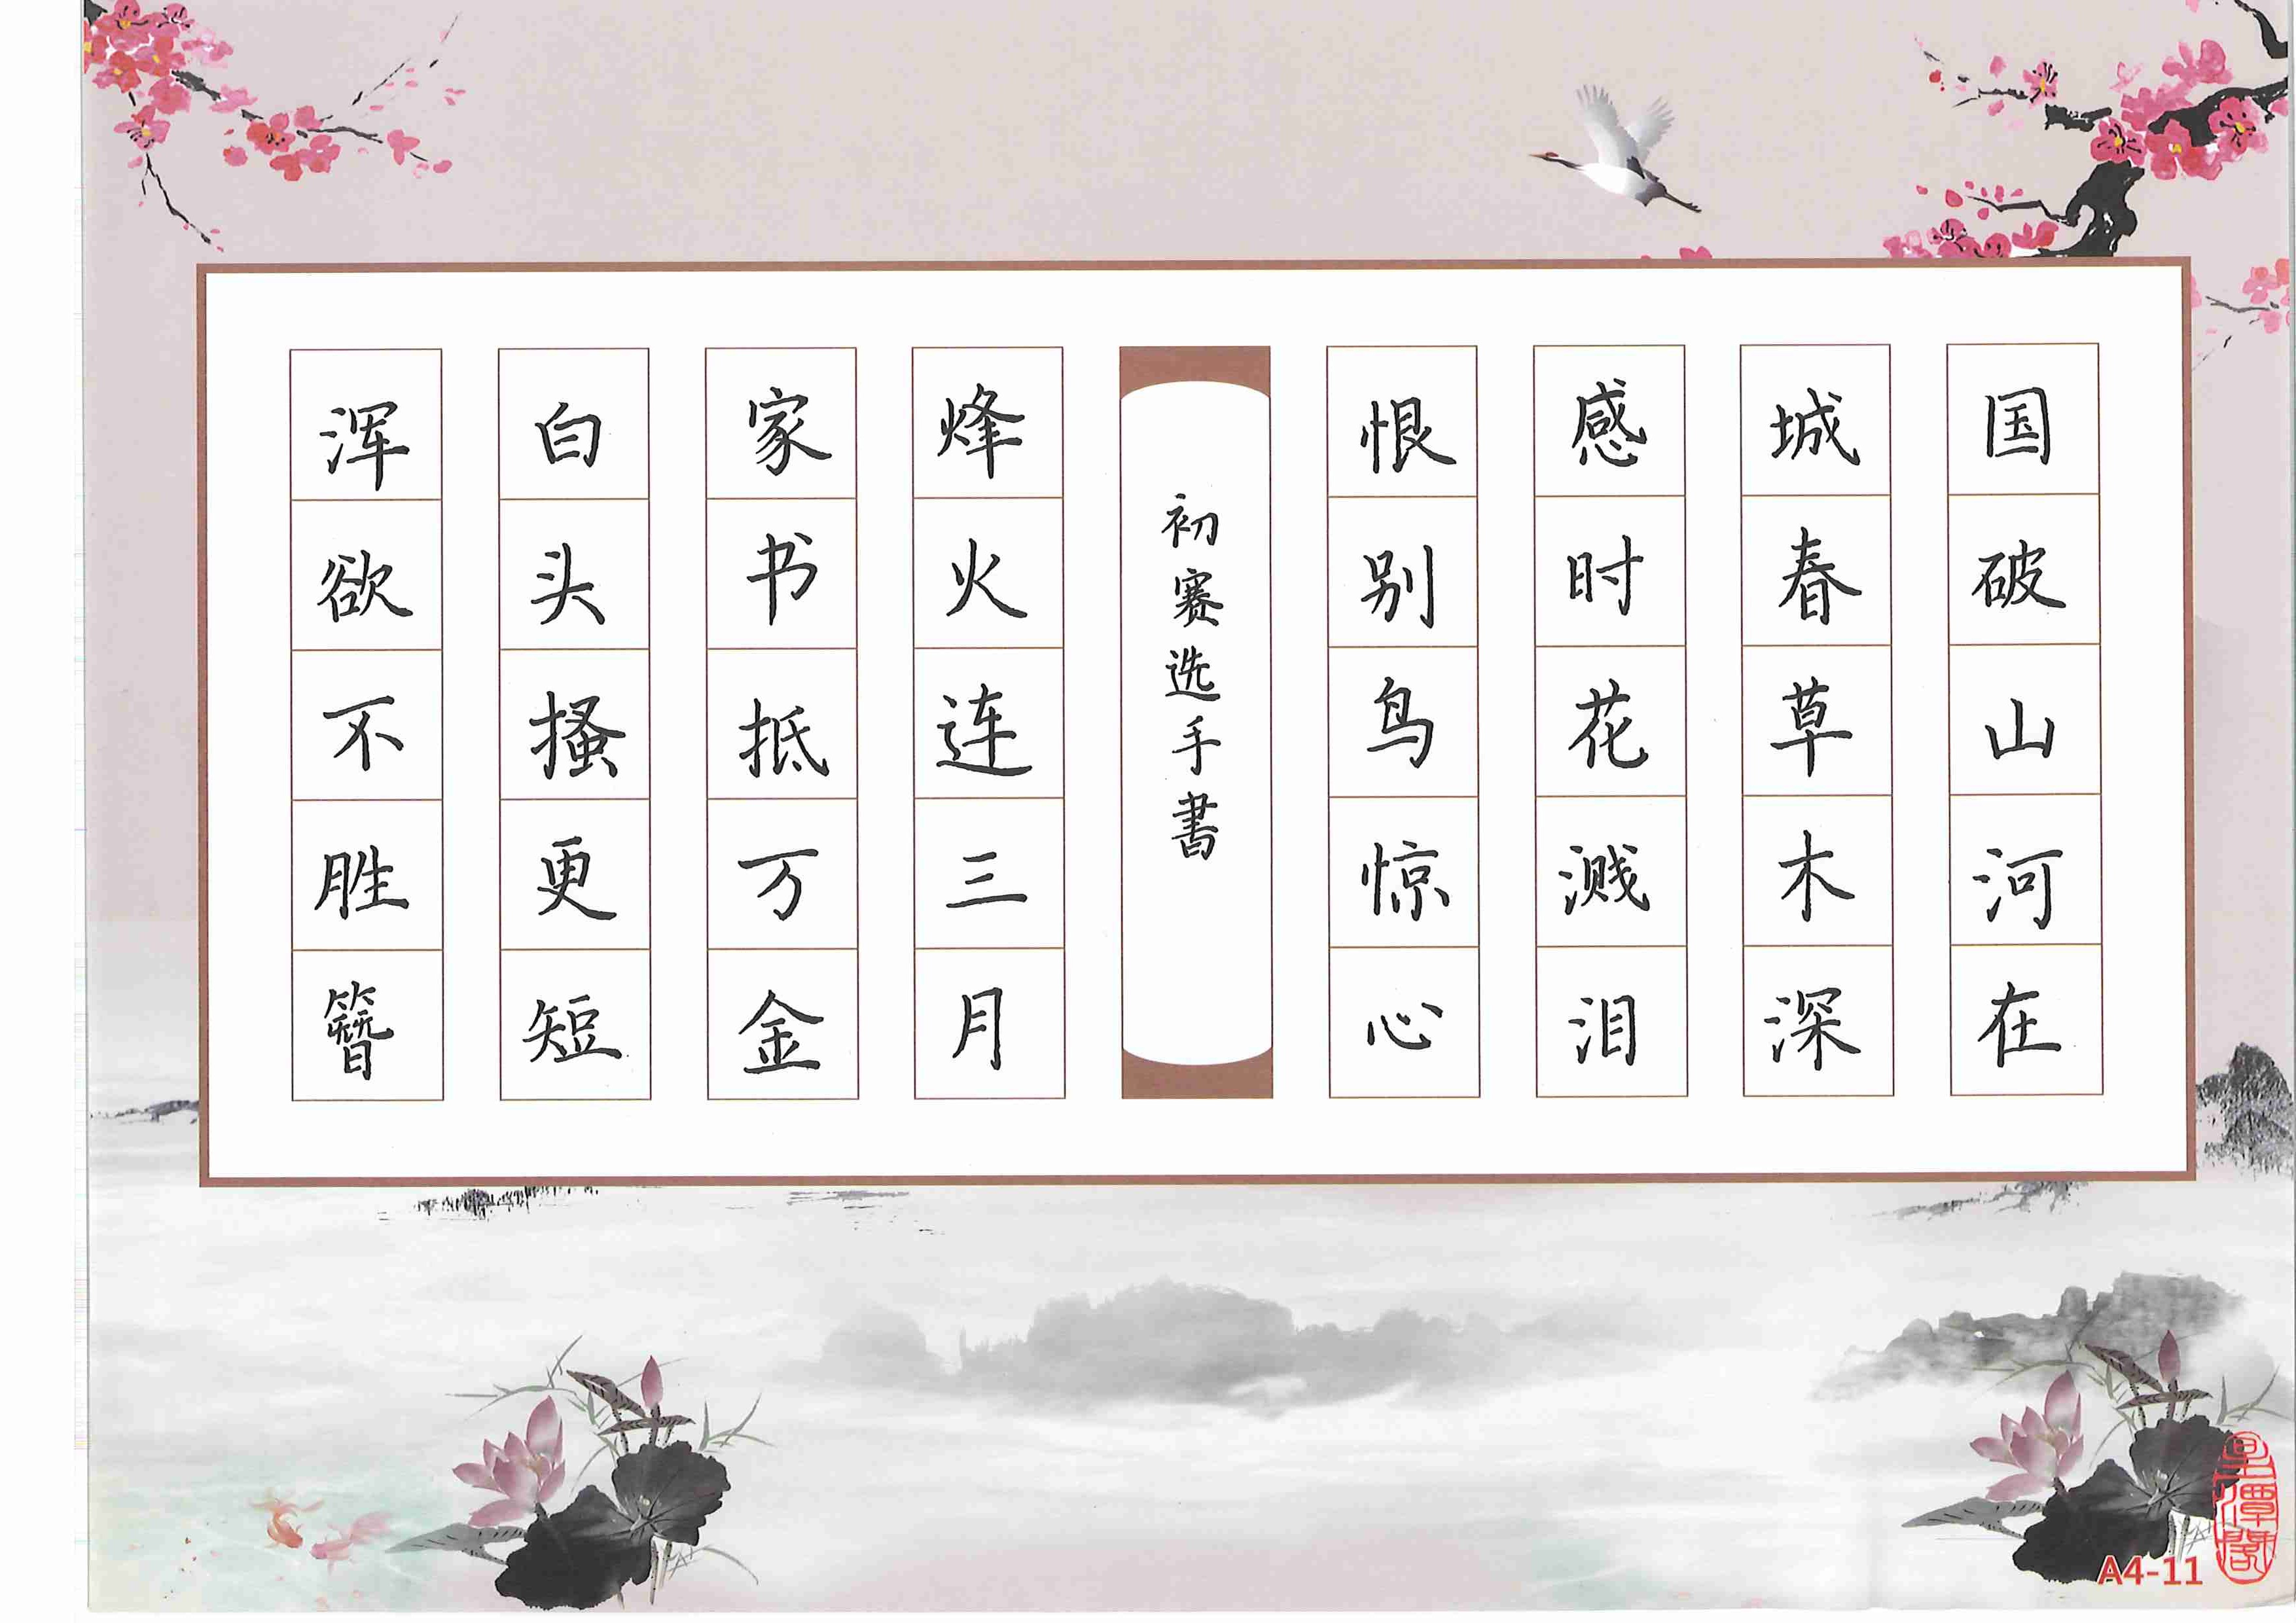 国破山河在
城春草木深
感时花溅泪
恨别鸟惊心
初赛选手書
烽火连三月
家书抵万金
白头搔更短
浑欲不胜簪
A4-11